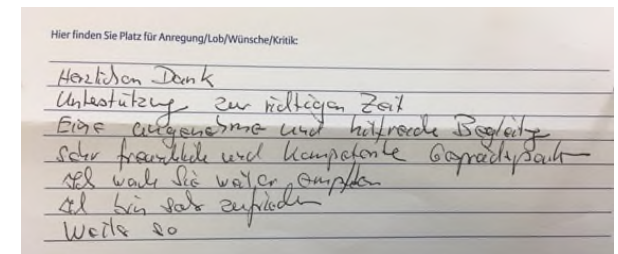 Hier finden Sie Platz für Anregung/Lob/Wünsche/Kritik:
Herzlichen Dank
Unterstützung zur richtigen Zeit
Eine angenehme und hilfreiche Begleitung
Sehr freundliche und kompetente Gesprächspartn
Ich werde Sie weiter empfehlen
Ich bin sehr zufrieden
Weiter so